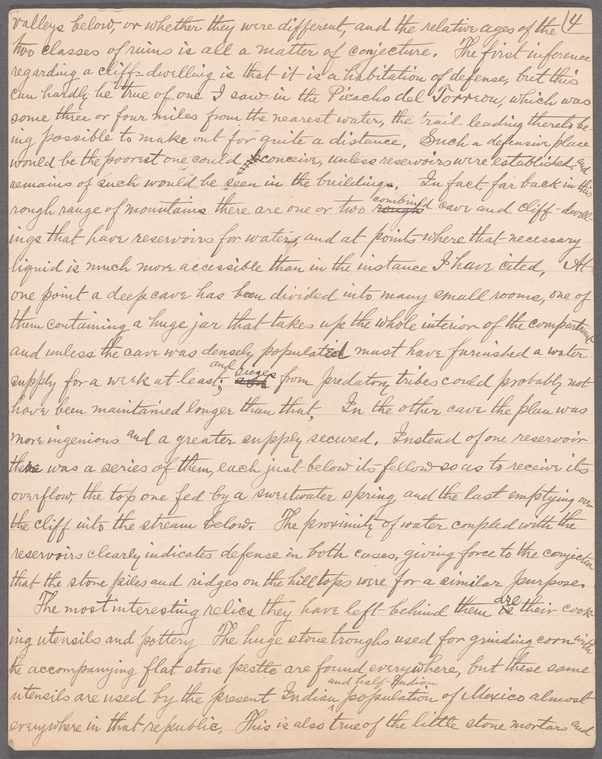 valleys below, or whether they were different, and the relative ages of the 14
two classes of ruins is all a matter of conjecture. The first inference
regarding a cliffs-dwelling is that it is a habitation of defense, but this
can hardly be true of one I saw in the Picacho del Torreon, which was
some three or four miles from the nearest water, the trail leading thereto be-
ing possible to make out for quite a distance. Such a defensive place
would be the poorest one could conceive, unless reservoirs were established, and
remains of such would be seen in the buildings. In fact, far back in this
rough range of mountains there are one or two combined cave and cliff-dwell-
ings that have reservoirs for water, and at points where that necessary
liquid is much more accessible than in the instance I have cited. At
one point a deep cave has been divided into many small rooms, one of
them containing a huge jar that takes up the whole interior of the compartment
and unless the cave was densely populated must have furnished a water
supply for a week at least; and sieges from predatory tribes could probably not
have been maintained longer than that. In the other cave the plan was
more ingenious and a greater supply secured. Instead of one reservoir
there was a series of them, each just below its fellow so as to receive its
overflow, the top one fed by a sweetwater spring and the last emptying over
the cliff into the stream below. The proximity of water coupled with the
reservoirs clearly indicates defense in both cases, giving force to the conjecture
that the stone piles and ridges on the hilltops were for a similar purpose.
The most interesting relics they have left behind them are their cook-
ing utensils and pottery The huge stone troughs used for grinding corn with
the accompanying flat stone pestle are found everywhere, but these same
utensils are used by the present Indian and half-Indian population of Mexico almost
everywhere in that republic. This is also true of the little stone mortars and